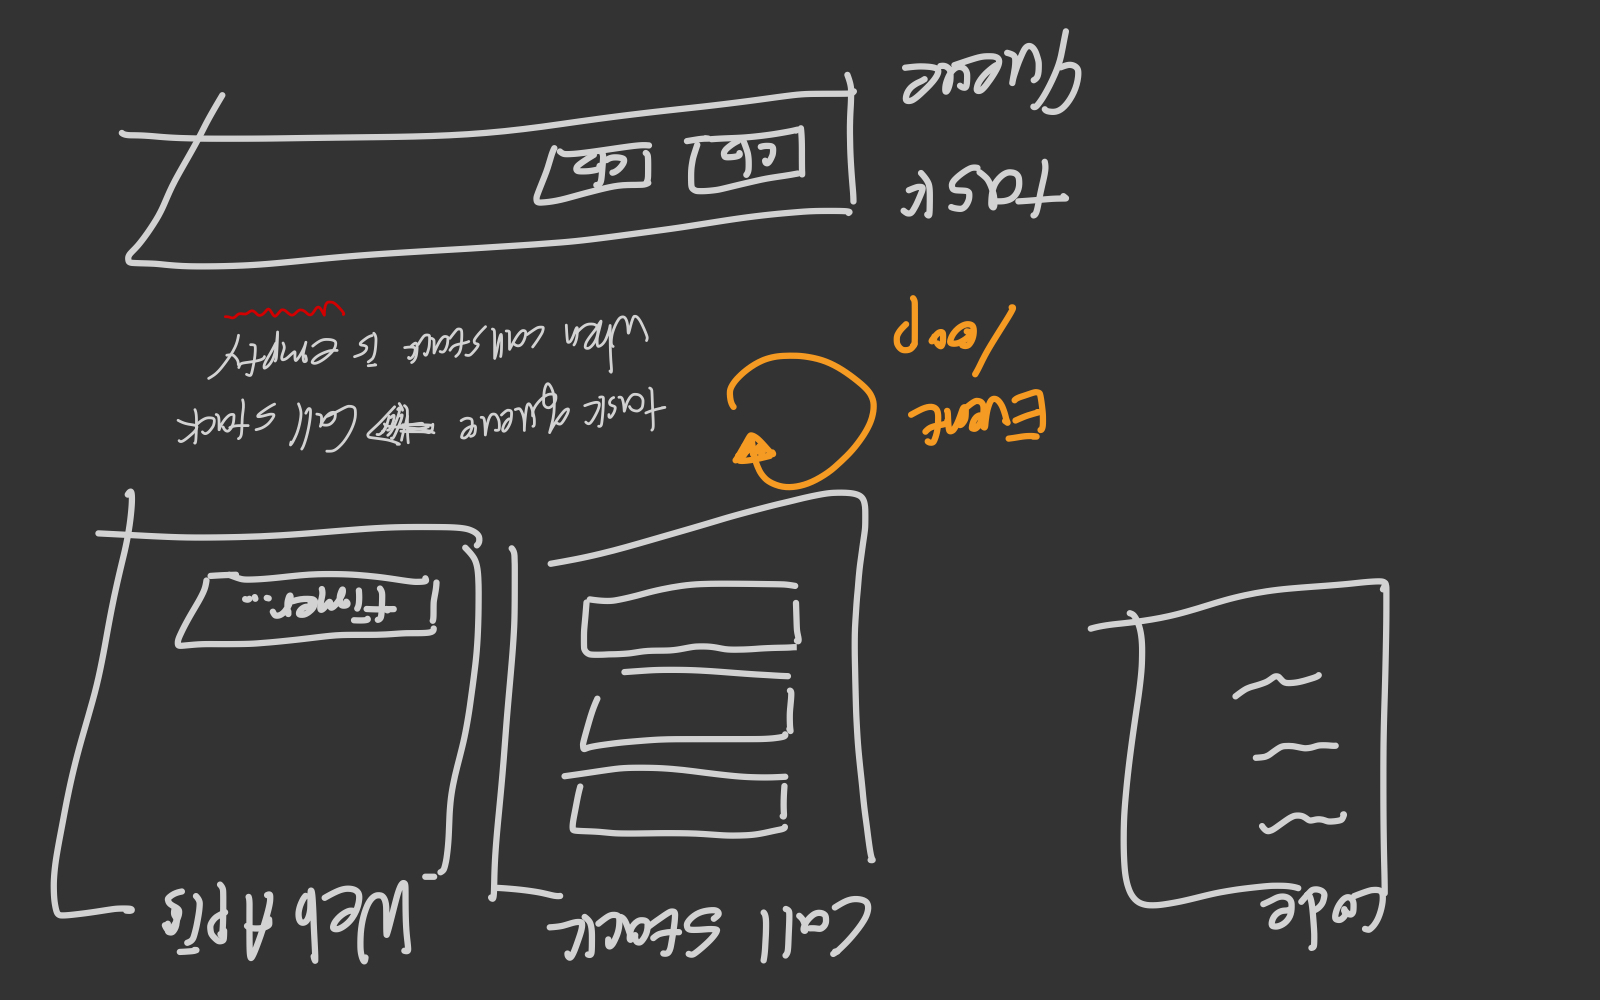 Code
Call Stack
Web Apis
timer...
Event
loop
task queue → Call stack
when call stack is empty
task
queue
cb
cb